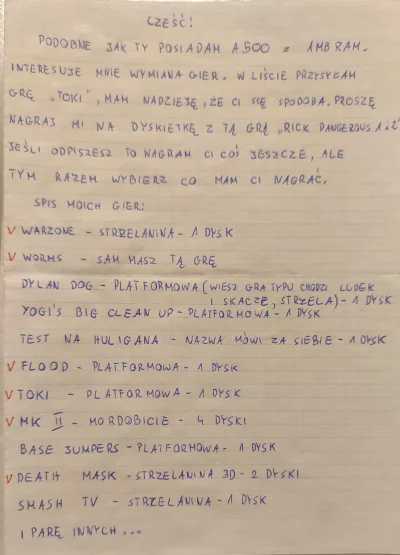 CZEŚĆ!
PODOBNE JAK TY POSIADAM A500 z 1MB RAM.
INTERESUJE MNIE WYMIANA GIER. W LIŚCIE PRZYSYŁAM
GRĘ „TOKI”, MAM NADZIEJĘ, ŻE CI SIĘ SPODOBA. PROSZĘ
NAGRAJ MI NA DYSKIETKĘ Z TĄ GRĄ „RICK DANGEROUS 1 i 2”
JEŚLI ODPISZESZ TO NAGRAM CI COŚ JESZCZE, ALE
TYM RAZEM WYBIERZ CO MAM CI NAGRAĆ.
SPIS MOICH GIER:
V WARZONE - STRZELANINA - 1 DYSK
V WORMS - SAM MASZ TĄ GRĘ
DYLAN DOG - PLATFORMOWA (WIESZ GRA TYPU CHODZI LUDEK
I SKACZE, STRZELA) - 1 DYSK
YOGI'S BIG CLEAN UP - PLATFORMOWA - 1 DYSK
TEST NA HULIGANA - NAZWA MÓWI ZA SIEBIE - 1 DYSK
V FLOOD - PLATFORMOWA - 1 DYSK
V TOKI - PLATFORMOWA - 1 DYSK
V MK II - MORDOBICIE - 4 DYSKI
BASE JUMPERS - PLATFORMOWA - 1 DYSK
V DEATH MASK - STRZELANINA 3D - 2 DYSKI
SMASH TV - STRZELANINA - 1 DYSK
I PARĘ INNYCH ...